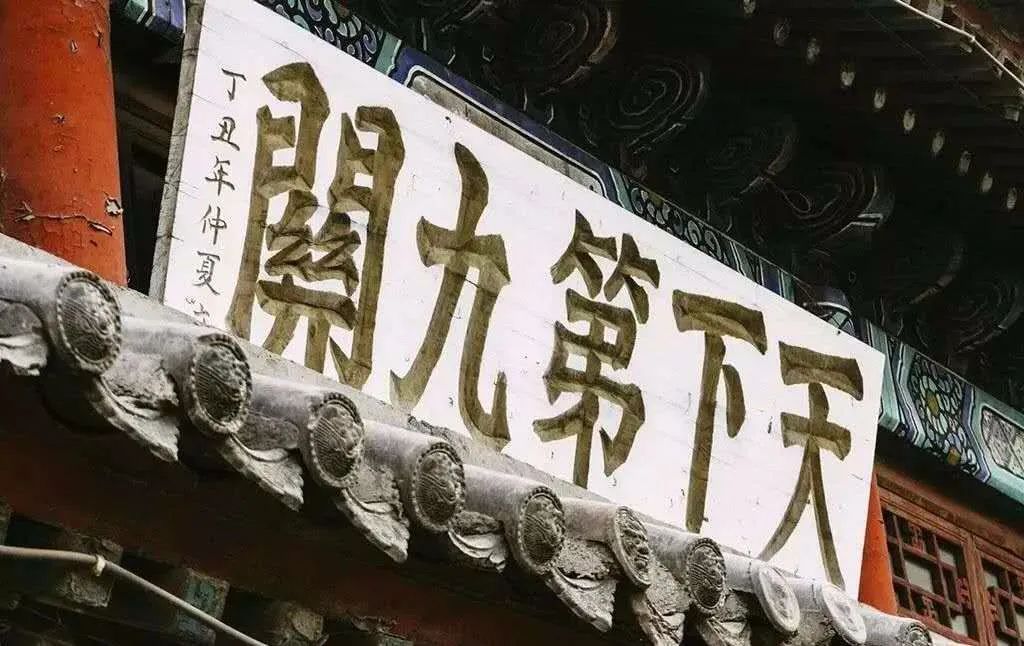 天下第九關
丁丑年仲夏